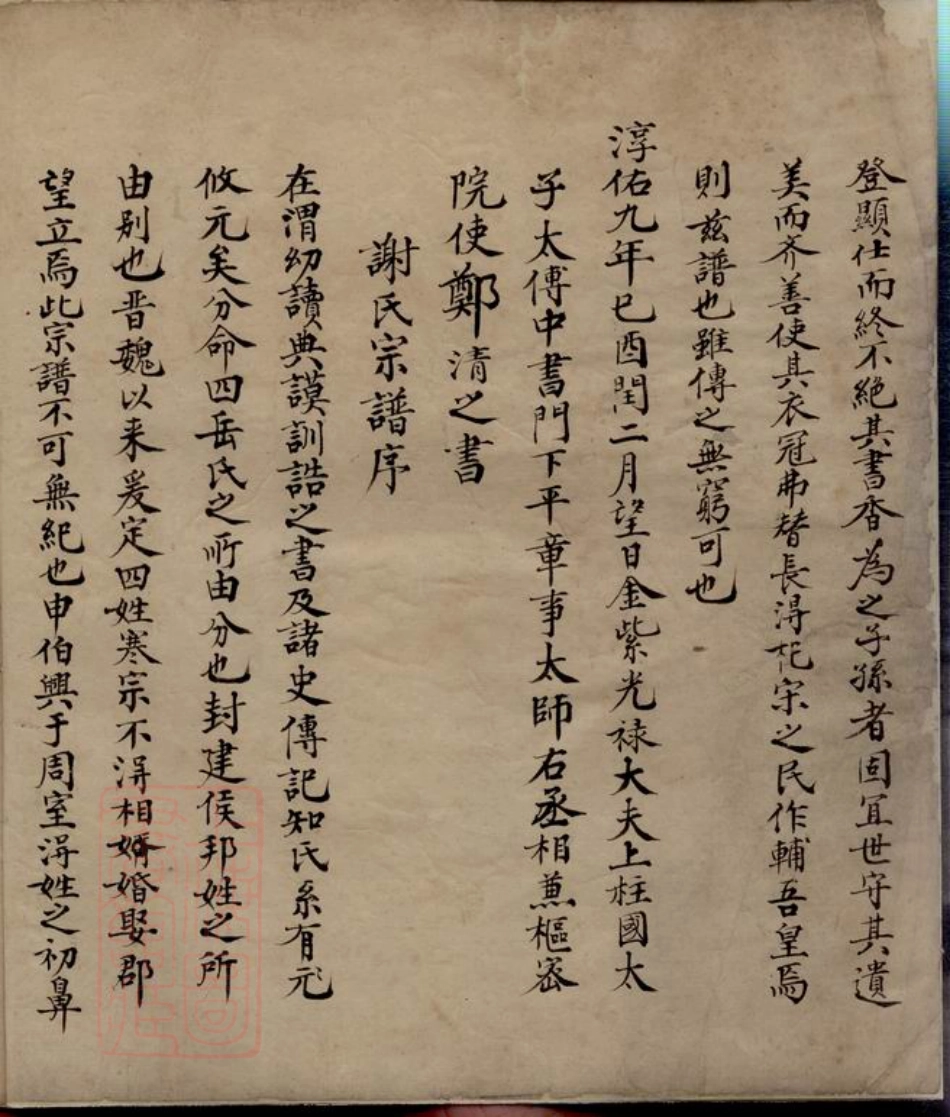 登顯仕而終不絕其書香為之子孫者固宜世守其遺
美而齐善使其衣冠弗替長淂祀宋之民作輔吾皇焉
則茲譜也雖傳之無窮可也
淳佑九年巳酉閏二月望日金紫光禄大夫上柱國太
子太傅中書門下平章事太師右丞相蒹樞宻
院使鄭清之書
謝氏宗譜序
在渭幼讀典謨訓誥之書及諸史傳記知氏系有元
攸元矣分命四岳氏之所由分也封建侯邦姓之所
由别也晋魏以来爰定四姓寒宗不淂相婚婚娶郡
望立焉此宗譜不可無紀也申伯興于周室淂姓之初鼻